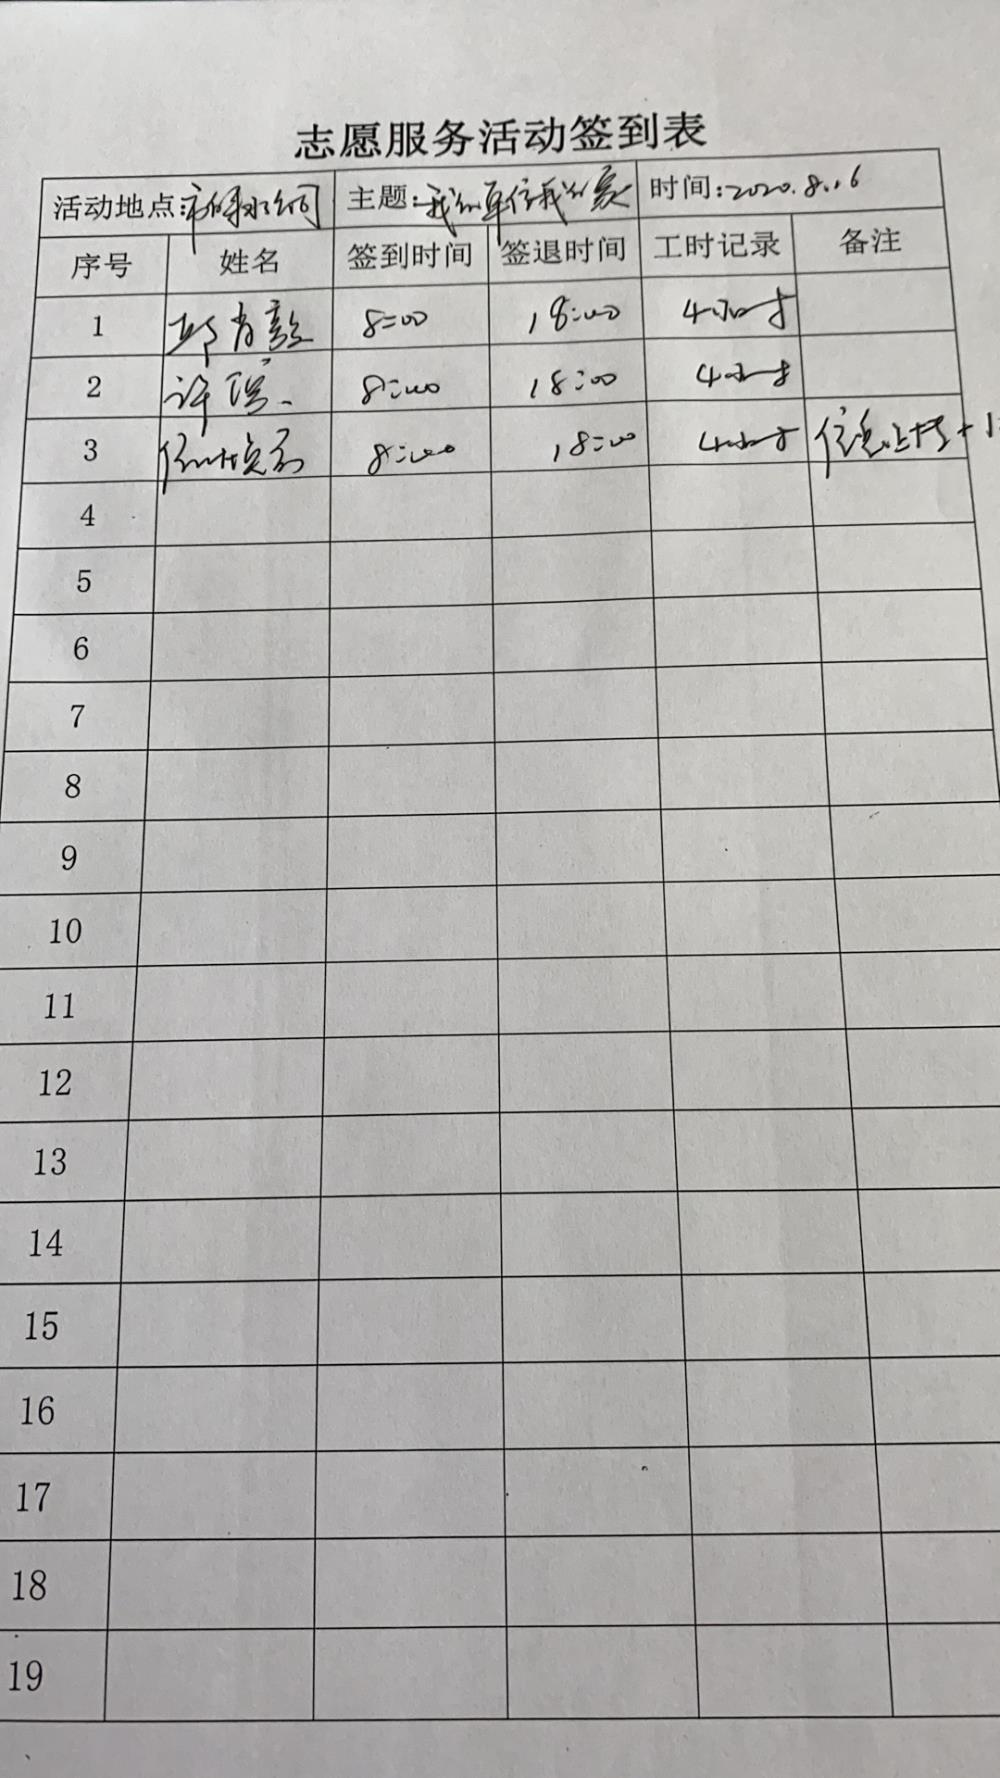 志愿服务活动签到表
活动地点: 主题:我的单位我的家 时间:2020.8.16
序号 姓名 签到时间 签退时间 工时记录 备注
1 邱肖 8:00 18:00 4小时
2 许 8:00 18:00 4小时
3 8:00 18:00 4小时 信息上传+1
4
5
6
7
8
9
10
11
12
13
14
15
16
17
18
19